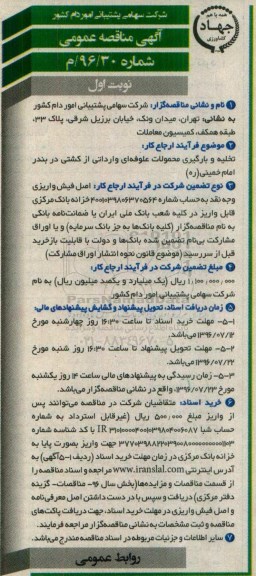 شرکت سهامی پشتیبانی امور دام کشور
همه با هم
جهاد
کشاورزی
آگهی مناقصه عمومی
شماره ۹۶/۳۰/م
نوبت اول
۱ نام و نشانی مناقصه‌گزار: شرکت سهامی پشتیبانی امور دام کشور
به نشانی: تهران، میدان ونک، خیابان برزیل شرقی، پلاک ۳۳،
طبقه همکف، کمیسیون معاملات
۲ موضوع فرآیند ارجاع کار:
تخلیه و بارگیری محمولات علوفه‌ای وارداتی از کشتی در بندر
امام خمینی(ره)
۳ نوع تضمین شرکت در فرآیند ارجاع کار: اصل فیش واریزی
وجه نقد به حساب شماره خزانه بانک مرکزی
قابل واریز در کلیه شعب بانک ملی ایران یا ضمانت‌نامه بانکی
به نام مناقصه‌گزار (کلیه بانک‌ها به جز بانک سرمایه) و یا اوراق
مشارکت بی‌نام تضمین شده بانک‌ها و دولت با قابلیت بازخرید
قبل از سررسید (موضوع قانون نحوه انتشار اوراق مشارکت)
۴ مبلغ تضمین شرکت در فرآیند ارجاع کار:
۱,۱۰۰,۰۰۰,۰۰۰ ریال (یک میلیارد و یکصد میلیون ریال) به نام
شرکت سهامی پشتیبانی امور دام کشور
۵ زمان دریافت اسناد، تحویل پیشنهاد و گشایش پیشنهادهای مالی:
۵-۱- مهلت خرید اسناد تا ساعت ۱۶:۳۰ روز چهارشنبه مورخ
۱۳۹۶/۰۷/۱۲ می‌باشد.
۵-۲- مهلت تحویل پیشنهاد تا ساعت ۱۶:۳۰ روز شنبه مورخ
۱۳۹۶/۰۷/۲۲ می‌باشد.
۵-۳- زمان رسیدگی به پیشنهادهای مالی ساعت ۱۴ روز یکشنبه
مورخ ۱۳۹۶/۰۷/۲۳، واقع در نشانی مناقصه‌گزار می‌باشد.
۶ خرید اسناد: متقاضیان شرکت در مناقصه می‌توانند پس
از واریز مبلغ ۵۰۰,۰۰۰ ریال (غیرقابل استرداد) به شماره
حساب شبا IR با کد شناسه شماره
جهت واریز بصورت پایا به
خزانه بانک مرکزی در زمان مهلت خرید اسناد (ردیف ۱-۵آگهی) به
آدرس اینترنتی www.iranslal.com مراجعه و اسناد مناقصه را
از قسمت مناقصات و مزایده‌ها(بخش سال ۹۶- مناقصات- گزینه
دفتر مرکزی) دریافت و سپس با در دست داشتن اصل معرفی‌نامه
و اصل فیش واریزی در مهلت خرید اسناد، جهت دریافت پاکت‌های
مناقصه و ثبت مشخصات به نشانی مناقصه‌گزار مراجعه فرمایند.
۷ سایر اطلاعات و جزئیات مربوطه در اسناد مناقصه مندرج می‌باشد.
روابط عمومی